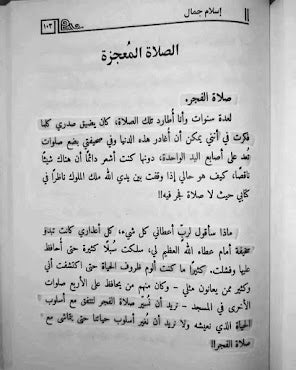 إسلام جمال
١٠٣
الصلاة المُعجزة
صلاة الفجر.
لعدة سنوات وأنا أُطارد تلك الصلاة، كان يضيق صدري كلما
فكرت في أنني يمكن أن أغادر هذه الدنيا وفي صحيفتي بضع صلوات
تُعد على أصابع اليد الواحدة، دونها كنت أشعر دائمًا أن هناك شيئًا
ناقصًا، كيف هو حالي إذا وقفت بين يدي الله ملك الملوك ناظرًا في
كتابي حيث لا صلاة فجر فيه!!
ماذا سأقول لربٍ أعطاني كل شيء، كل أعذاري كانت تبدو
سخيفة أمام عطاء الله العظيم لي، سلكت سُبلًا كثيرة حتى أُحافظ
عليها وفشلت. كثيرًا ما كنت ألوم ظروف الحياة حتى اكتشفت أني
وكثير ممن يعانون مثلي - وكان منهم من يحافظ على الأربع صلوات
الأخرى في المسجد - نريد أن نُسيّر صلاة الفجر لتتفق مع أسلوب
الحياة الذي نعيشه ولا نريد أن نُغير أسلوب حياتنا حتى يتماشى مع
صلاة الفجر!!